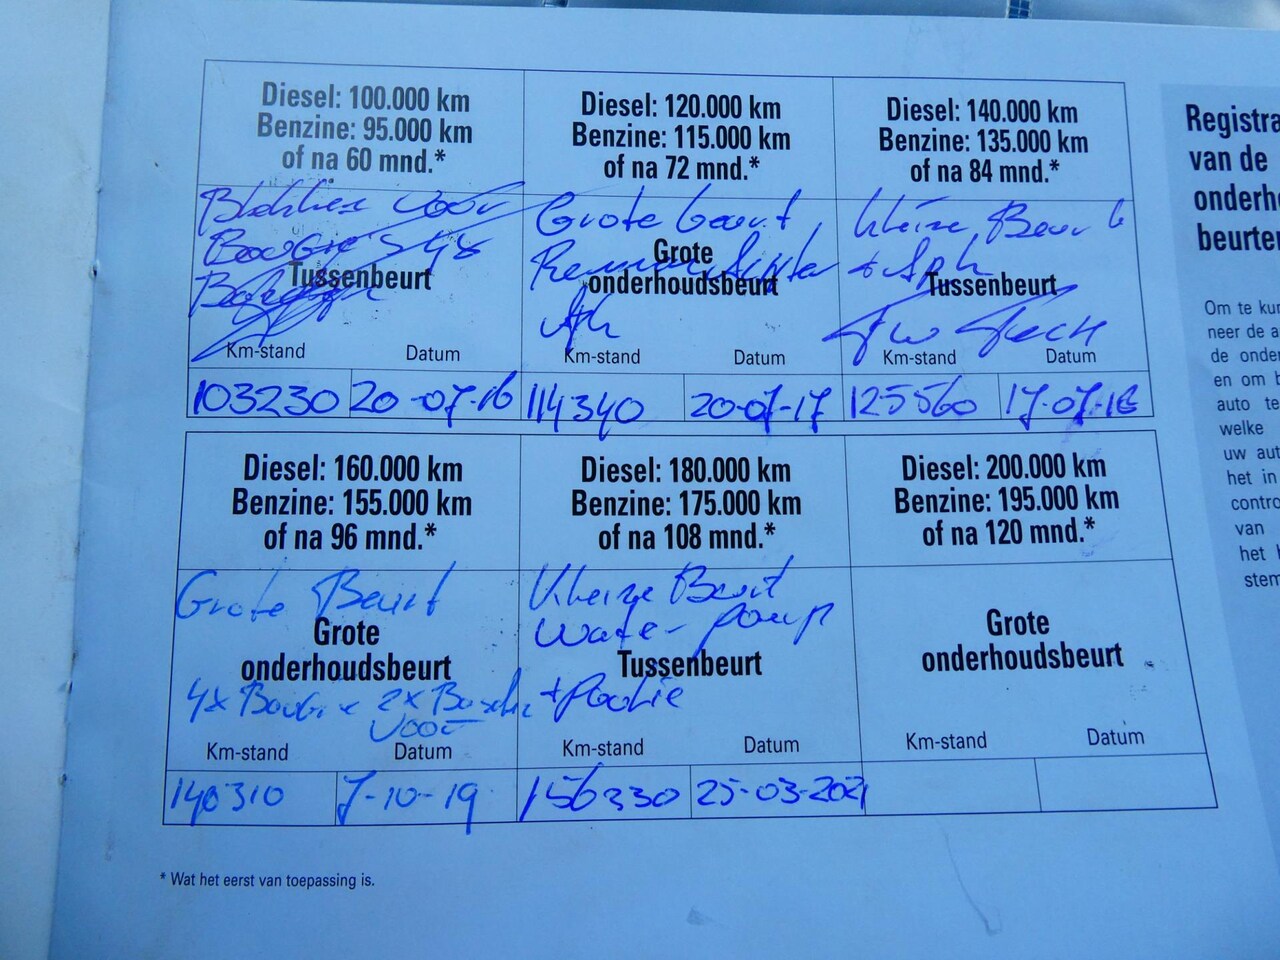 Diesel: 100.000 km
Benzine: 95.000 km
of na 60 mnd.*
voor
Bougie's
Tussenbeurt
Km-stand Datum
103230 20-07-16
Diesel: 120.000 km
Benzine: 115.000 km
of na 72 mnd.*
Grote beurt
Grote
onderhoudsbeurt
Apk
Km-stand Datum
114340 20-07-17
Diesel: 140.000 km
Benzine: 135.000 km
of na 84 mnd.*
Kleine Beurt
+ Apk
Tussenbeurt
Km-stand Datum
125560 17-07-18
Diesel: 160.000 km
Benzine: 155.000 km
of na 96 mnd.*
Grote Beurt
Grote
onderhoudsbeurt
4x Bougie 2x
voor
Km-stand Datum
7-10-19
Diesel: 180.000 km
Benzine: 175.000 km
of na 108 mnd.*
Kleine Beurt
Water pomp
Tussenbeurt
Km-stand Datum
156330 25-03-2021
Diesel: 200.000 km
Benzine: 195.000 km
of na 120 mnd.*
Grote
onderhoudsbeurt
Km-stand Datum
* Wat het eerst van toepassing is.
Registra
van de
onderh
beurten
Om te kun
neer de a
de onder
en om b
auto te
welke
uw aut
het in
contro
van
het
stem